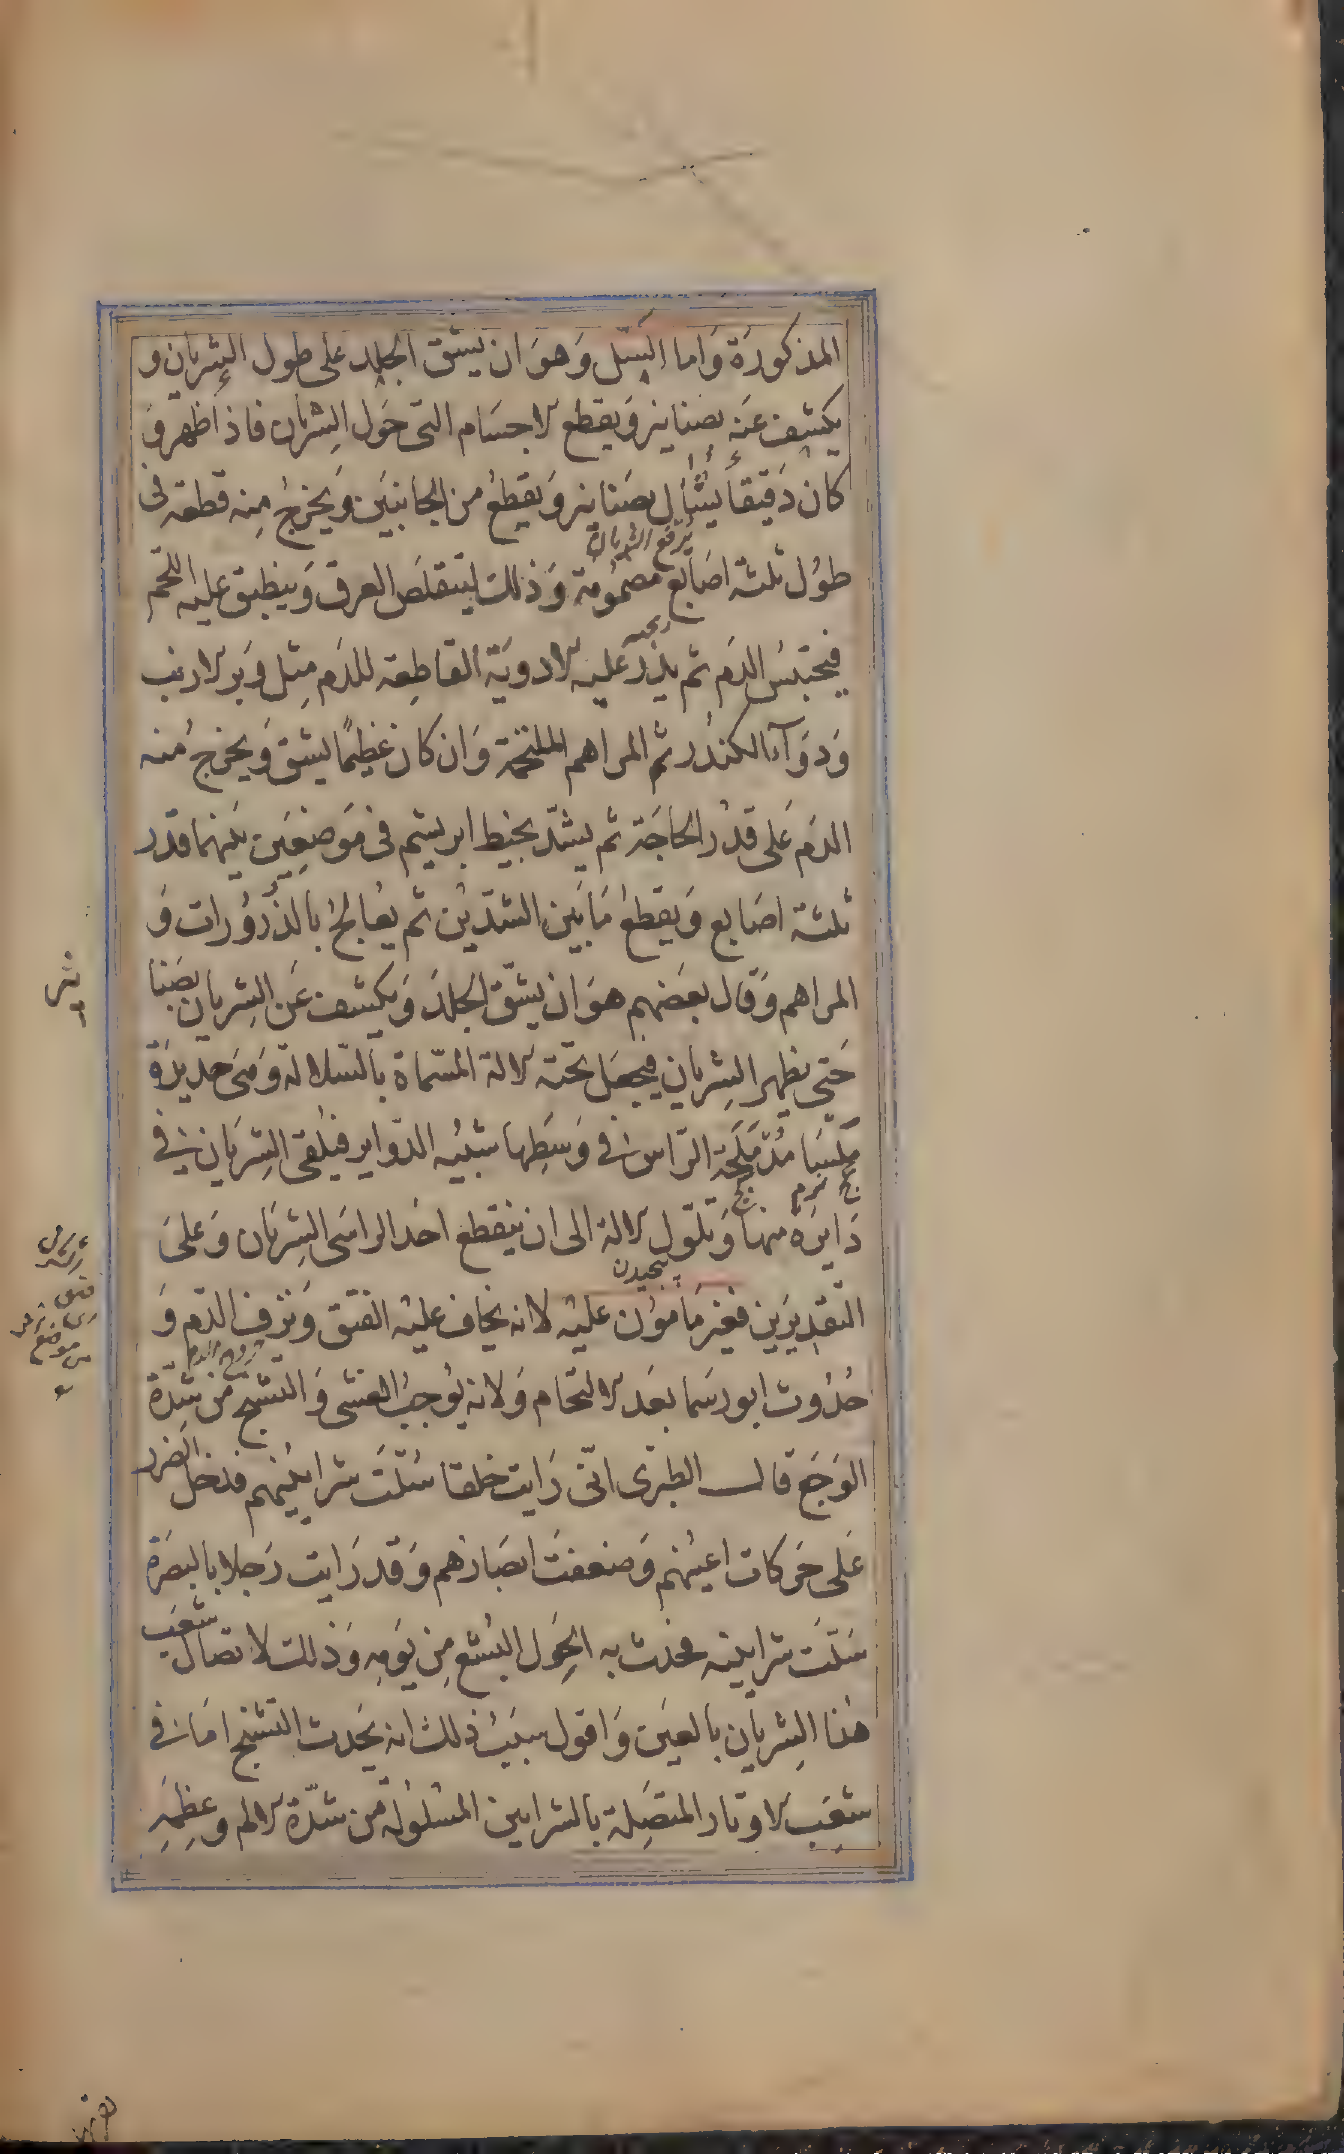 المذكورَة وَاما السّل وَهوَ ان يشق الجلد على طول الشريان و
يكشف عَنه بصنانير وَيقطع الاجسَام التى حَول الشِريان فاذ اظهر وَ
كان دَقيقاً يُشال بصَنانير وَيقطعُ من الجانبَين وَيخرجُ مِنه قطعه فى
طوُل ثلثة اصَابع مضمُومة وَذلك ليتقلصَ العرق وَينطبق عليه اللحم
فيحتبسُ الدَم ثم يذرّ عليه الادويَة القاطِعه للدَم مِثل وَبر الارنب
وَدوَآء الكندُر ثم المراهم الملتحمة وَان كان عَظيمًا يشق وَيخرجُ منه
الدَم عَلى قدرُ الحاجَة ثم يشدّ بخيط ابريشم فى مَوضعِين بينهما قدر
ثلثة اصَابع وَيقطعُ مَا بَين الشدّين ثم يعُالجُ بالذُروُرات وَ
المراهم وَقال بعَضهم هوَ ان يشقّ الجلدَ وَيكشف عَن الشِريان بصَنا
نير
حَتى يظهر الشِريان فيجعَل تحته الالة المسّماة بالسّلالة وَهى حديدَة
ملسَا مُدَملَجَة الرّاس فى وَسَطِها شبيُه الدّواير فيلقى الشِريَان فى
دَايرَة منها وَتلوّل الالة الى ان ينقطع احَد الراسَى الشِريَان وَعلىَ
پيچيدن
التقديرَين فغير مَامؤن عليْه لانه يخاف عليْه الفتق وَنزف الدّم وَ
خروج الدم
حُدُوث ابورسَما بعَد الالتحام وَلانه يوُجبُ الغشى وَالتشنج من شدّة
الوَجَع قال الطبَرى انّى رَايت خلقا سُلّت شرايينهم فدخل الضرر
عَلى حَركات اعينُهم وَضعفتَ ابصَارهم وَقد رَايت رَجلا بالبصَرة
سَلّتَ شرايينه فحدث به الحَوِل البشع مِن يَومِه وَذلك لاتصال شعَب
هذا الشِريان بالعيَن وَاقول سبَبُ ذلك انه يَحدث التشنج امَا فى
شعَب الاوتار المتصَِلة بالشرايين المسْلولَة من شدّة الالم وعِظَمِهِ